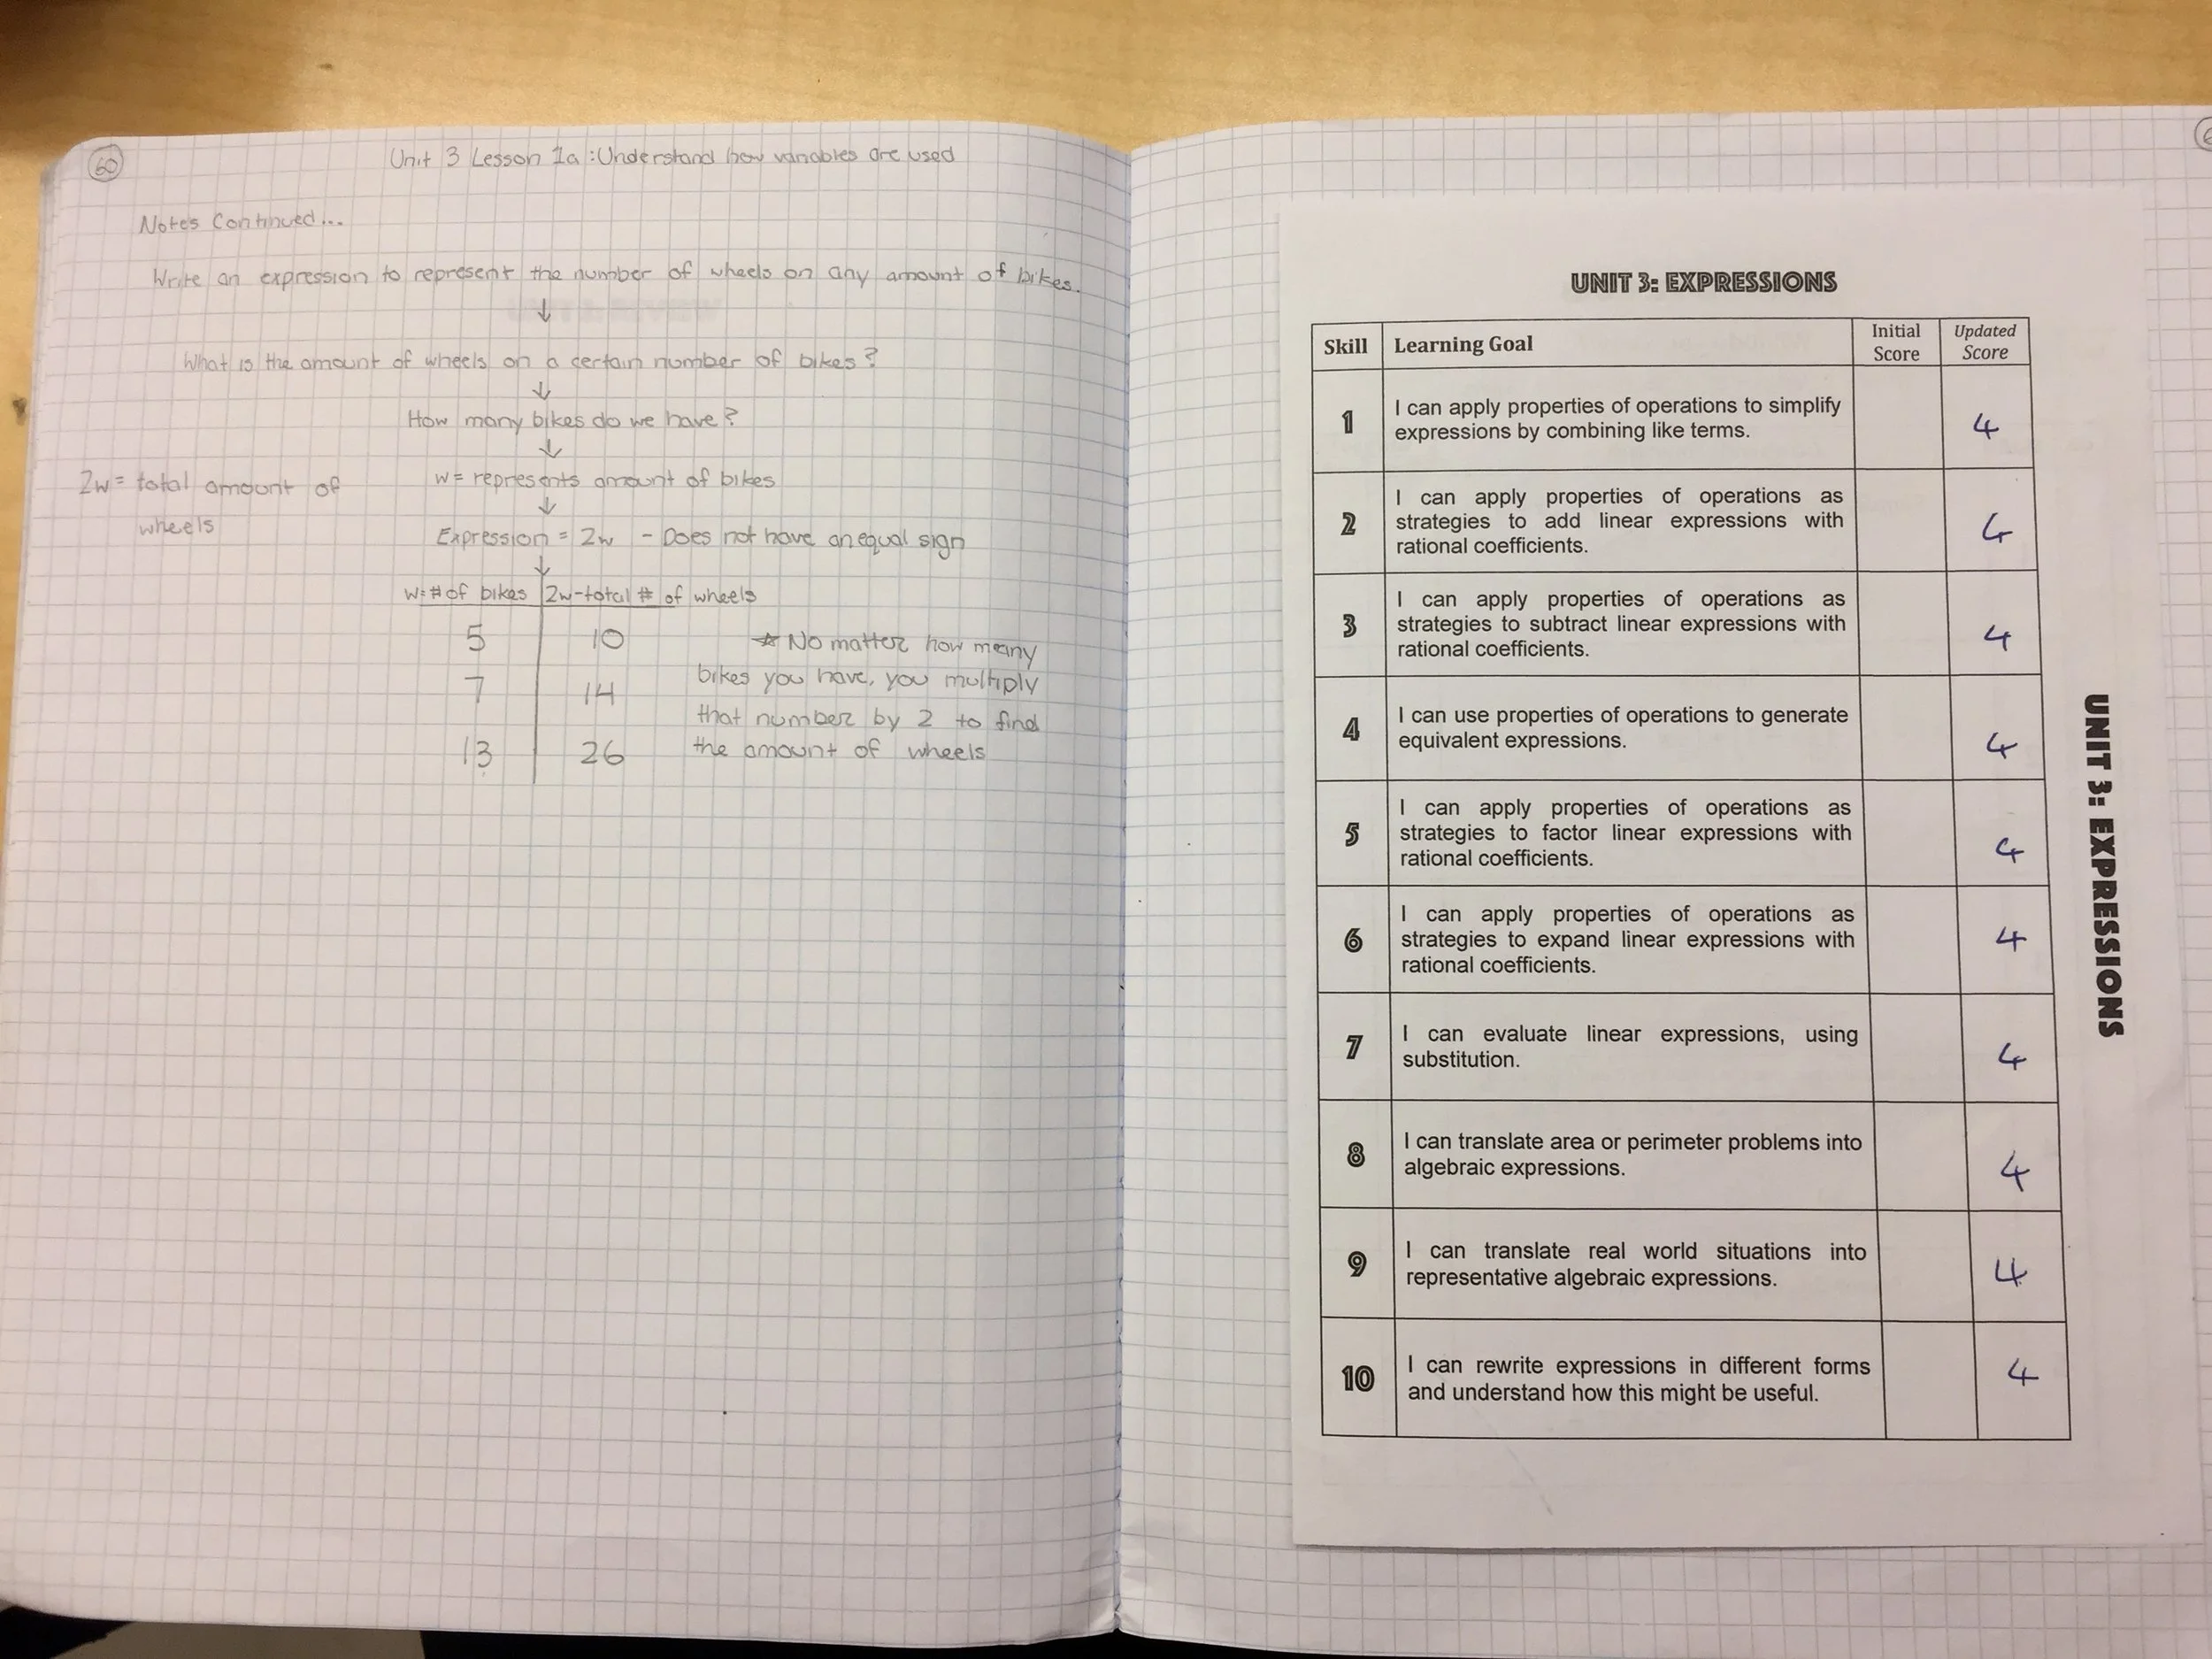 60
Unit 3 Lesson 1a : Understand how variables are used
Notes Continued...
Write an expression to represent the number of wheels on any amount of bikes.
↓
What is the amount of wheels on a certain number of bikes?
↓
How many bikes do we have?
↓
2w = total amount of
wheels
w = represents amount of bikes
↓
Expression = 2w - Does not have an equal sign
↓
w=# of bikes 2w-total # of wheels
5 10
7 14
13 26
☆ No matter how many
bikes you have, you multiply
that number by 2 to find
the amount of wheels
UNIT 3: EXPRESSIONS
Skill Learning Goal Initial Score Updated Score
1 I can apply properties of operations to simplify 4
expressions by combining like terms.
2 I can apply properties of operations as 4
strategies to add linear expressions with
rational coefficients.
3 I can apply properties of operations as 4
strategies to subtract linear expressions with
rational coefficients.
4 I can use properties of operations to generate 4
equivalent expressions.
5 I can apply properties of operations as 4
strategies to factor linear expressions with
rational coefficients.
6 I can apply properties of operations as 4
strategies to expand linear expressions with
rational coefficients.
7 I can evaluate linear expressions, using 4
substitution.
8 I can translate area or perimeter problems into 4
algebraic expressions.
9 I can translate real world situations into 4
representative algebraic expressions.
10 I can rewrite expressions in different forms 4
and understand how this might be useful.
UNIT 3: EXPRESSIONS